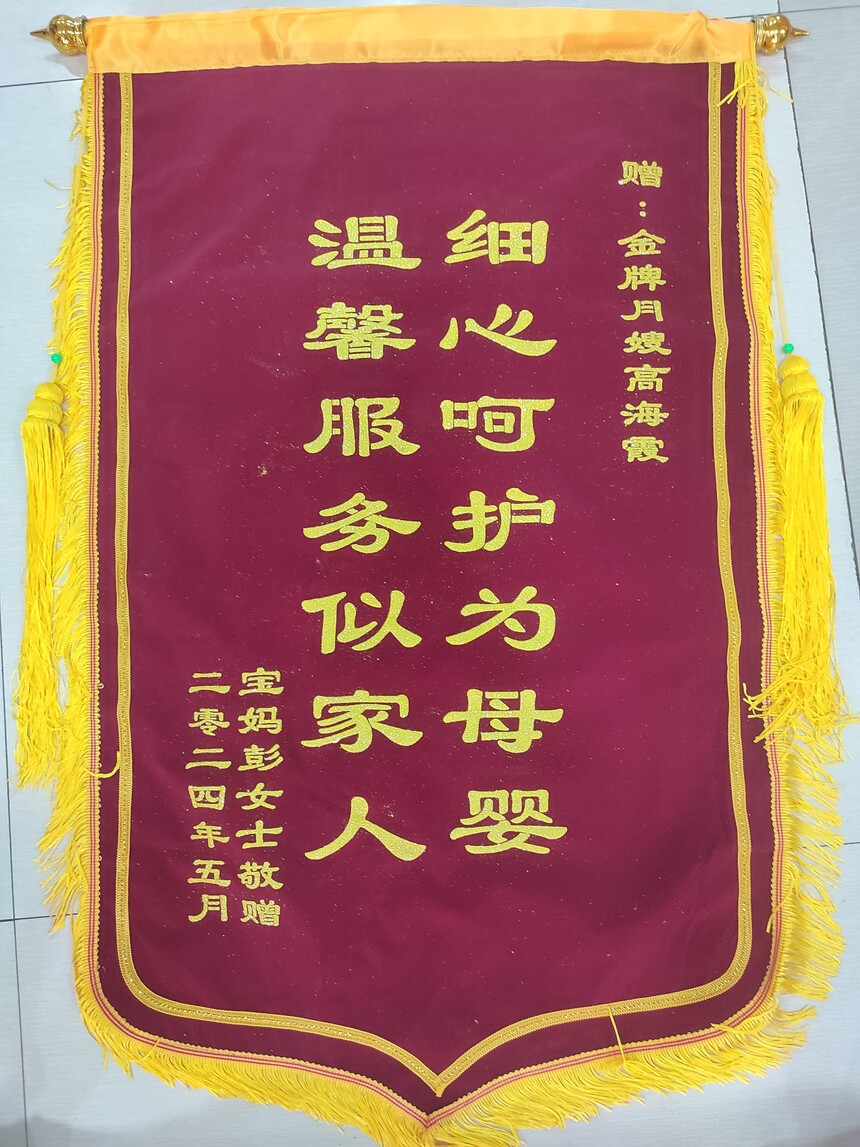 赠：金牌月嫂高海霞
细心呵护为母婴
温馨服务似家人
宝妈彭女士敬赠
二零二四年五月